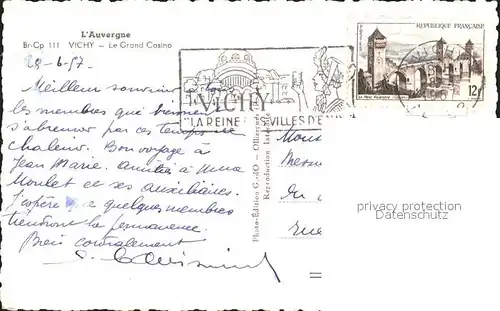 L'Auvergne
Br-Cp 111 VICHY — Le Grand Casino
28-6-57
Meilleur souvenir à tous
les membres que
s'abreuver par ces temps de
chaleur. Bon voyage à
Jean Marie. Amitiés à Mme
Moulet et ses auxiliaires.
J'espère que quelques membres
tiendront la permanence.
Bien cordialement
VICHY
LA REINE VILLES D'E
REPUBLIQUE FRANÇAISE
12f
Photo-Édition G. d'O — Ollier
Reproduction Inter
Mons
du
rue
privacy protection
Datenschutz